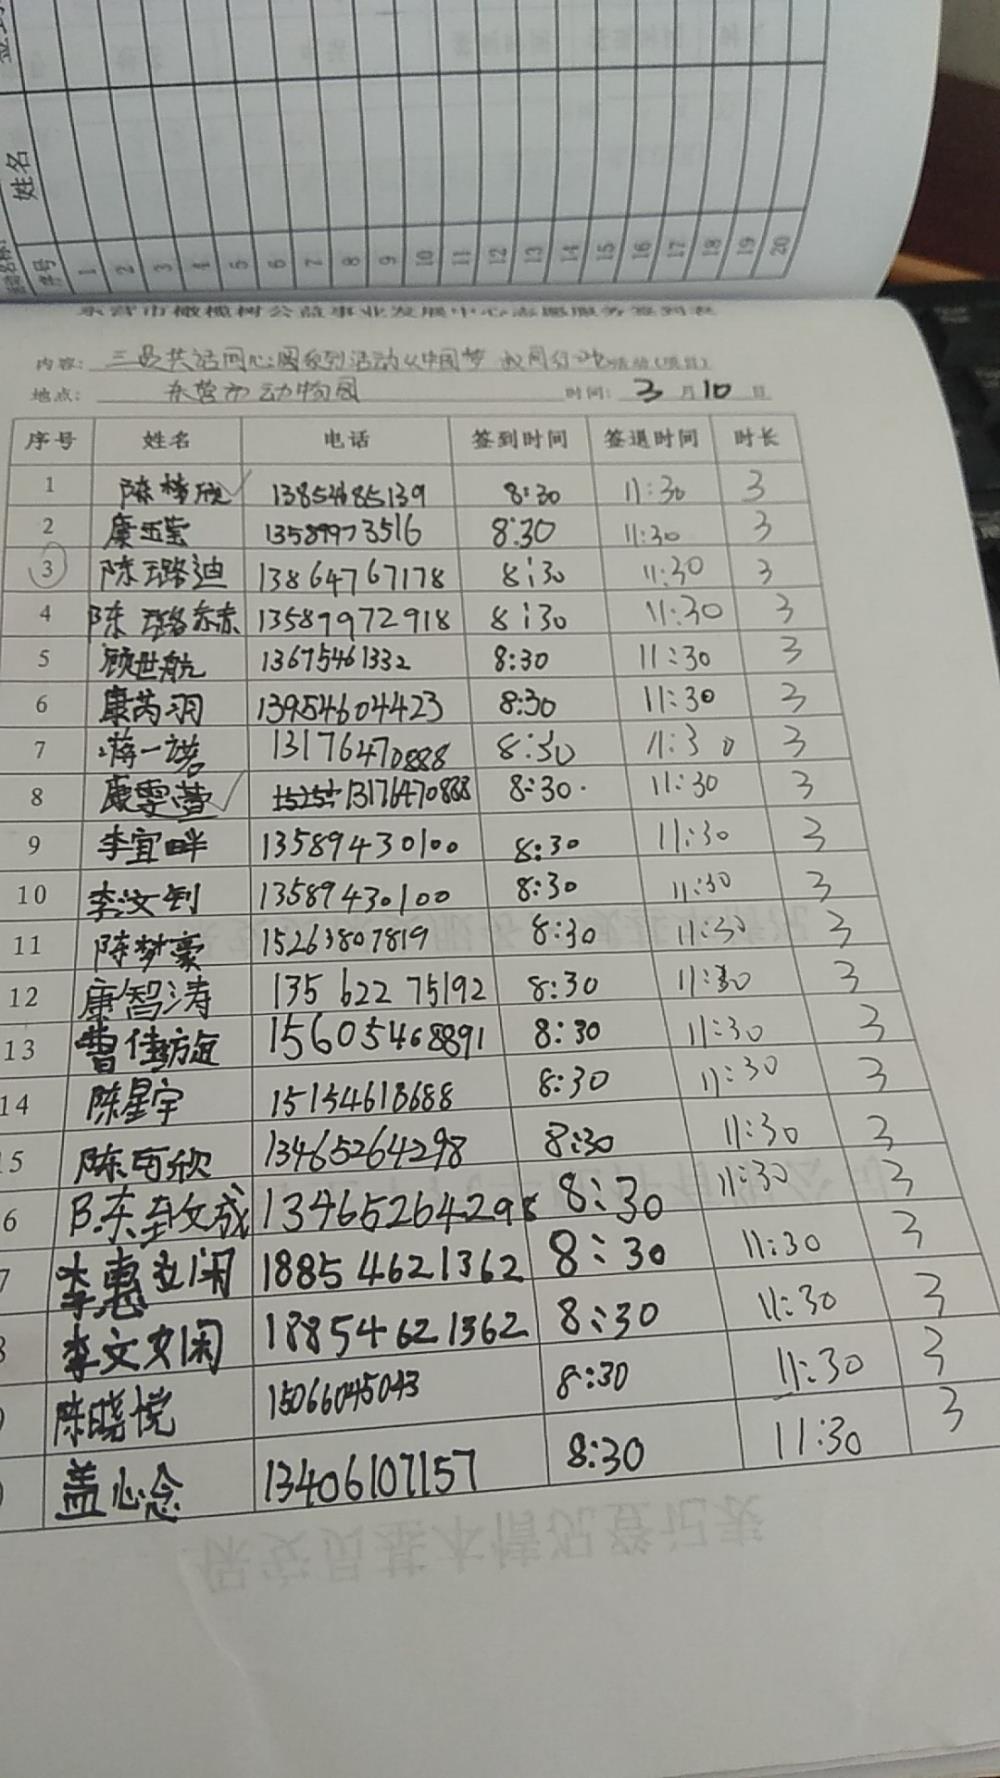 姓名
序号
1
2
3
4
5
6
7
8
9
10
11
12
13
14
15
16
17
18
19
20
东营市橄榄树公益事业发展中心志愿服务签到表
内容: 三 共话同心圆系列活动 中国梦 同行 活动(项目)
地点: 东营市动物园 时间: 3 月 10 日
序号 姓名 电话 签到时间 签退时间 时长
1 陈梦欣 13854685139 8:30 11:30 3
2 康玉莹 13589973516 8:30 11:30 3
3 陈璐迪 13864767178 8:30 11:30 3
4 陈璐赫 13589972918 8:30 11:30 3
5 顾世航 13675461332 8:30 11:30 3
6 康芮羽 13954604423 8:30 11:30 3
7 蒋一诺 13176470888 8:30 11:30 3
8 康雯萱 13176470888 8:30 11:30 3
9 李宜畔 13589430100 8:30 11:30 3
10 李汶钊 13589430100 8:30 11:30 3
11 陈梦豪 15263807819 8:30 11:30 3
12 康智涛 135 622 75192 8:30 11:30 3
13 曹佳旋 15605468891 8:30 11:30 3
14 陈星宇 15154618688 8:30 11:30 3
5 陈可欣 13465264298 8:30 11:30 3
6 陈致成 13465264298 8:30 11:30 3
7 李惠娴 18854621362 8:30 11:30 3
李文娴 18854621362 8:30 11:30 3
陈晓悦 15066045043 8:30 11:30 3
盖心念 13406107157 8:30 11:30 3
保安员基本情况登记表